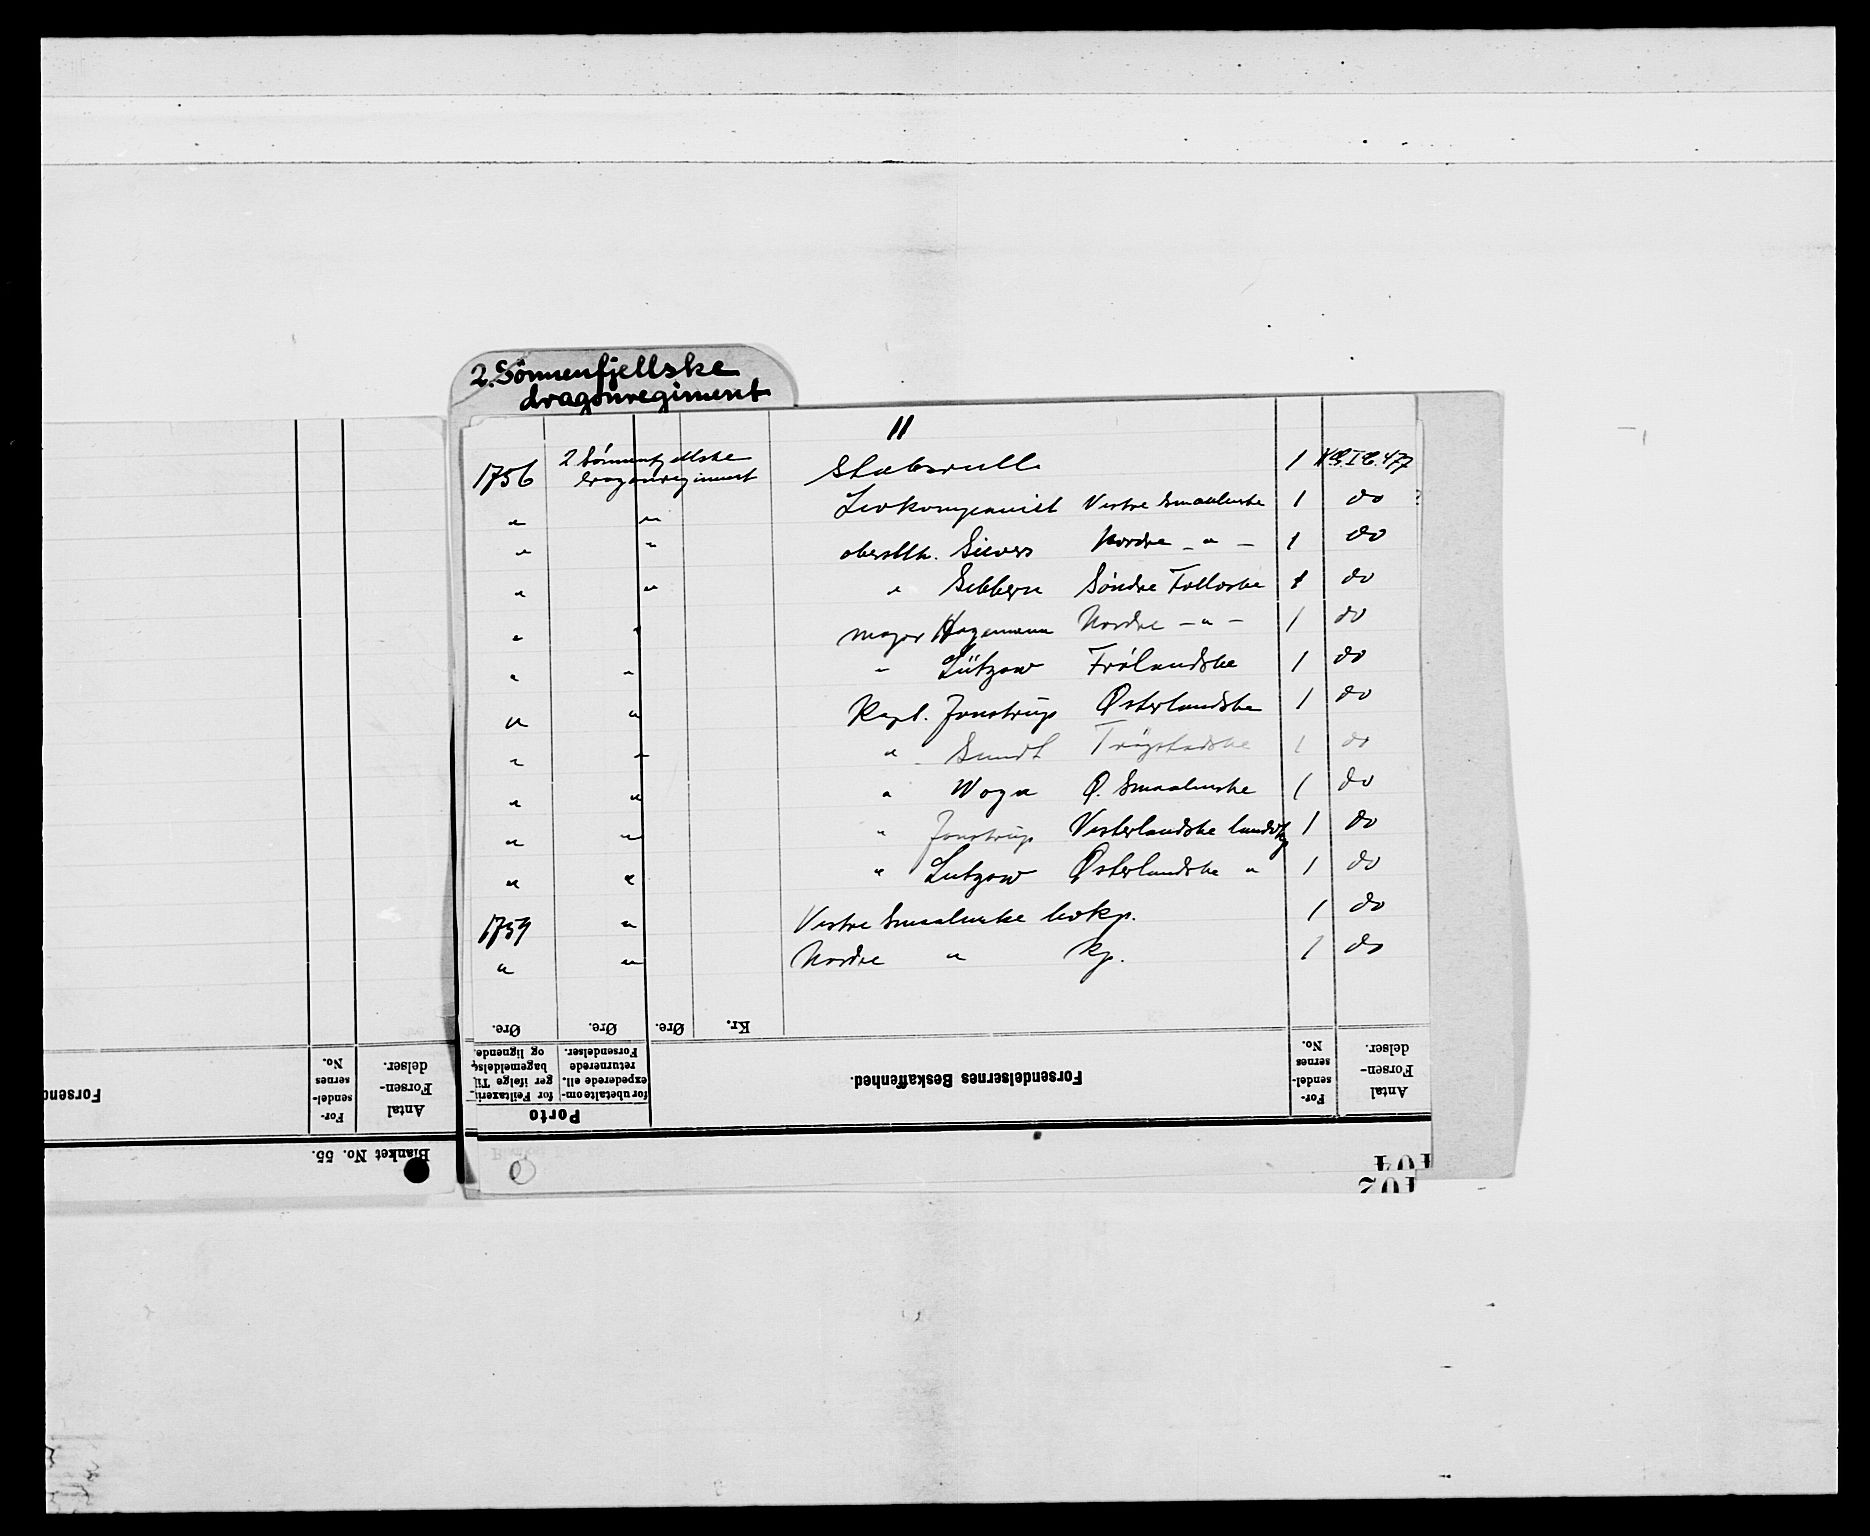 2. Sönnenfjellske
dragonregiment
11
1756 2 Sönnenfjellske dragonregiment Stabsrulle 1
" " Livkompaniet Vestre Smaalenske 1 do
" " oberstlt. Sievers Nordre - " - 1 do
" " " Sibbern Söndre Folloske 1 do
" " major Hagemann Nordre - " - 1 do
" " " Lützow Frölandske 1 do
" " Kapt. Jonstrup Østerlandske 1 do
" " " Sundt Trögstadske 1 do
" " " Wogn Ø. Smaalenske 1 do
" " " Jonstrup Vesterlandske 1 do
" " " Lutzow Østerlandske " 1 do
1759 " Vestre Smaalenske livkp. 1 do
" " Nordre " kp. 1 do
Øre. Øre. Øre. Kr.
Porto
for Feiltaxeringer ifølge Tilbagemeldelse og lignende.
for ubetalte omexpederede ell. returnerede Forsendelser.
Forsendelsernes Beskaffenhed.
Forsendelsernes No.
Antal Forsendelser.
Forsend
Forsendelsernes No.
Antal Forsendelser.
Blanket No. 55.
104
102